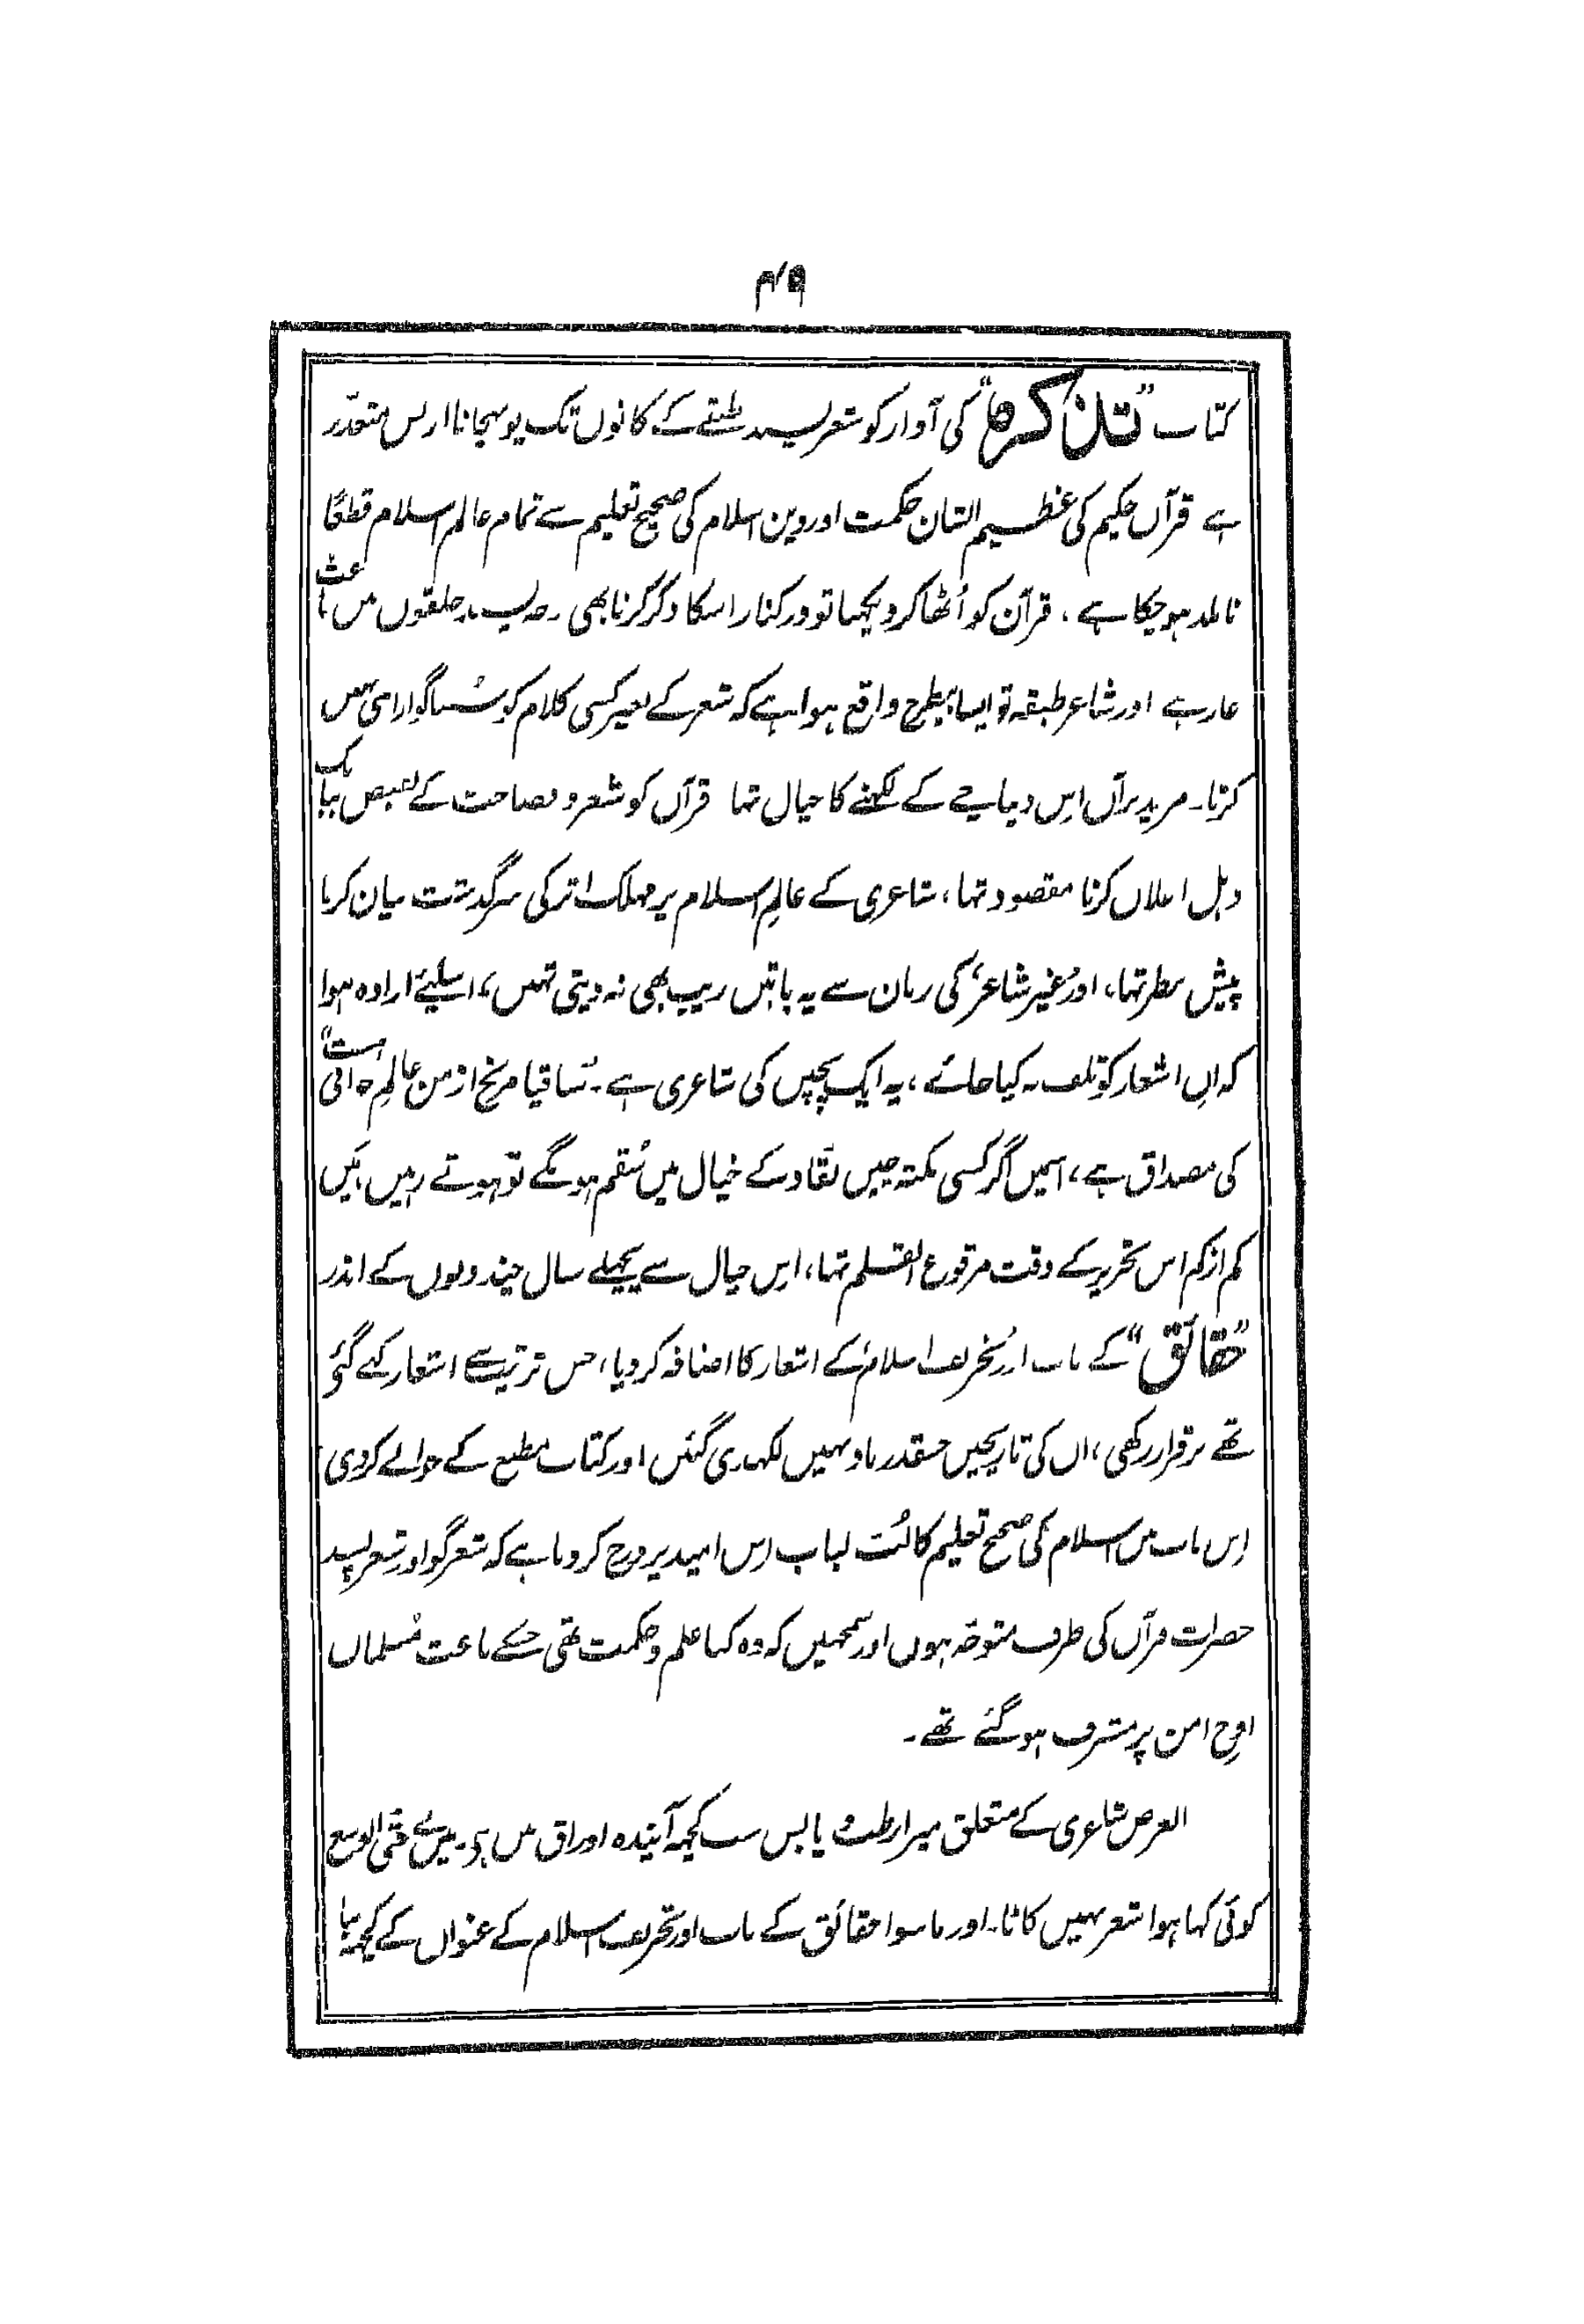 ۴۹
کتاب ”تذکرہ“ کی آواز کو شعر پسند طبقے کے کانوں تک پونہچانا ازبس متعذر
ہے قرآن حکیم کی عظیم الشان حکمت اور دین اسلام کی صحیح تعلیم سے تمام عالم اسلام قطعًا
نابلد ہو چکا ہے، قرآن کو اُٹھا کر دیکہنا تو درکنار اسکا ذکر کرنا بھی حلقوں میں باعث
عار ہے اور شاعر طبقہ تو ایسا واقع ہوا ہے کہ شعر کے بغیر کسی کلام کو سُننا گوارا ہی نہیں
کرتا۔ مزید برآں اِس دیباچے کے لکہنے کا خیال تہا قرآن کو شعر و فصاحت کے نقیض بہانگ
دہل اعلان کرنا مقصود تہا، شاعری کے عالمِ اسلام پر مہلک اثر کی سرگذشت بیان کرنا
پیش نظر تہا، اور ’غیر شاعر‘ کی زبان سے یہ باتیں زیب بھی نہ دیتی تہیں، اسلیئے ارادہ ہوا
کہ اِن اشعار کو تلف نہ کیا جائے، یہ ایک بچپن کی شاعری ہے۔ ”ساقیا مرنج از من عالمِ جوانی است“
کی مصداق ہے، اسمیں اگر کسی نکتہ چیں نقّاد کے خیال میں سُقم ہونگے تو ہوتے رہیں، میں
کم از کم اس تحریر کے وقت مرفوع القلم تہا، اِس خیال سے پچہلے سال چند دنوں کے اندر
”حقائق“ کے باب اور تحریف اسلام کے اشعار کا اضافہ کر دیا، جس ترتیب سے اشعار کہے گئے
تھے برقرار رکھی، ان کی تاریخیں جسقدر یاد تہیں لکہدی گئیں اور کتاب مطبع کے حوالے کردی
اِس باب میں اسلام کی صحیح تعلیم کا لُب لباب اِس امید پر درج کر دیا ہے کہ شعر گو اور شعر پسند
حضرات قرآن کی طرف متوجّہ ہوں اور سمجہیں کہ وہ کیا علم و حکمت تھی جسکے باعث مُسلمان
اوجِ امن پر مشرف ہو گئے تھے۔
الغرض شاعری کے متعلق میرا رطب و یابس سب کچہہ آیندہ اوراق میں ہے۔ میں نے حتّی الوسع
کوئی کہا ہوا شعر نہیں کاٹا۔ اور ماسوا حقائق کے باب اور تحریف اسلام کے عنوان کے کچہہ نیا